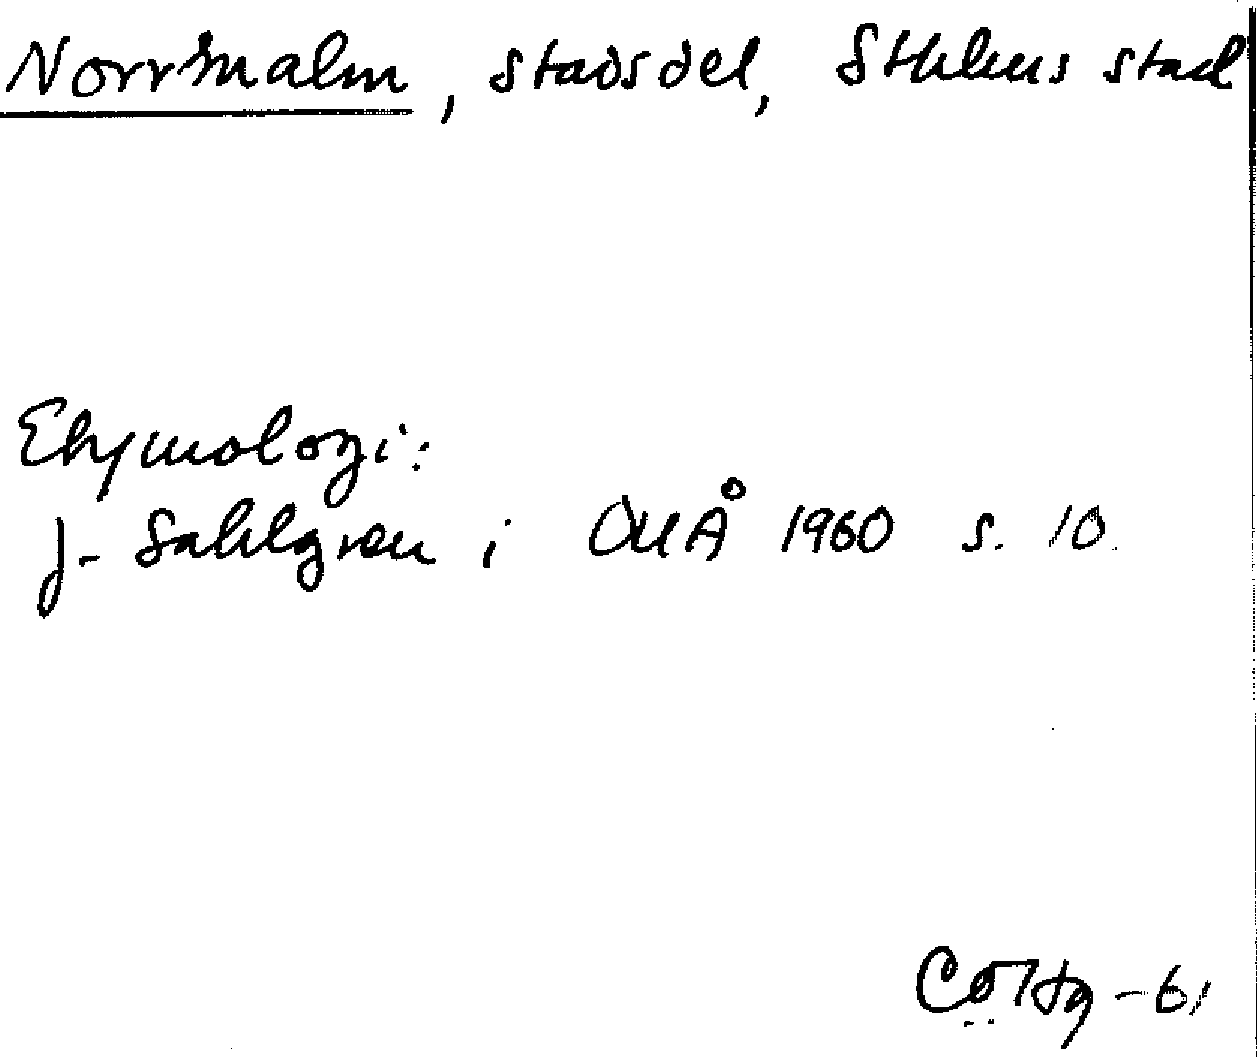 Norrmalm, stadsdel, Sthlms stad
Etymologi:
J. Sahlgren i OUÅ 1960 s. 10.
-61